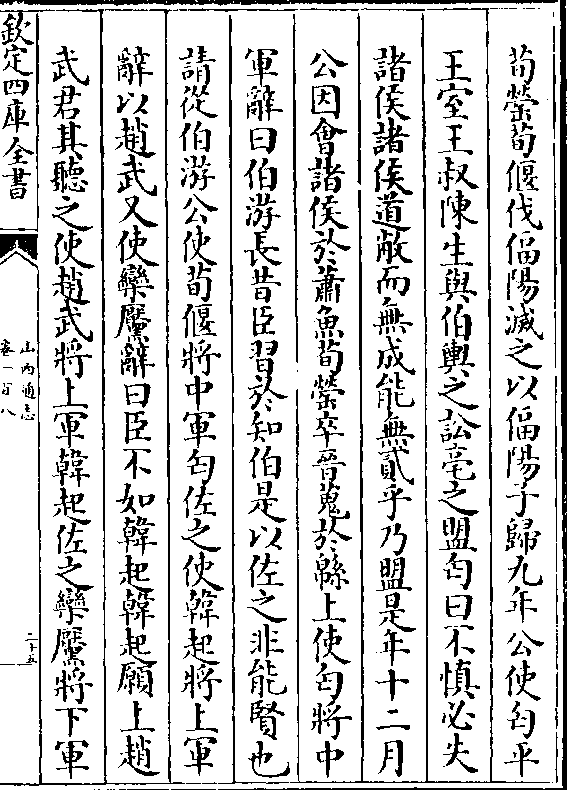 荀罃荀偃伐偪陽滅之以偪陽子歸九年公使匄平
王室王叔陳生與伯輿之訟亳之盟匄曰不慎必失
諸侯諸侯道敝而無成能無貳乎乃盟是年十二月
公因會諸侯於蕭魚荀罃卒晉蒐於緜上使匄將中
軍辭曰伯游長昔臣習於知伯是以佐之非能賢也
請從伯游公使荀偃將中軍匄佐之使韓起將上軍
辭以趙武又使欒黶辭曰臣不如韓起韓起願上趙
武君其聽之使趙武將上軍韓起佐之欒黶將下軍
欽定四庫全書
山西通志
卷一百八
二十五